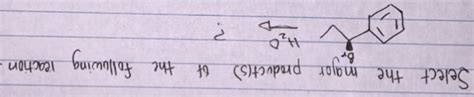 Select the major product(s) of the following reaction.
Br
H₂O
?